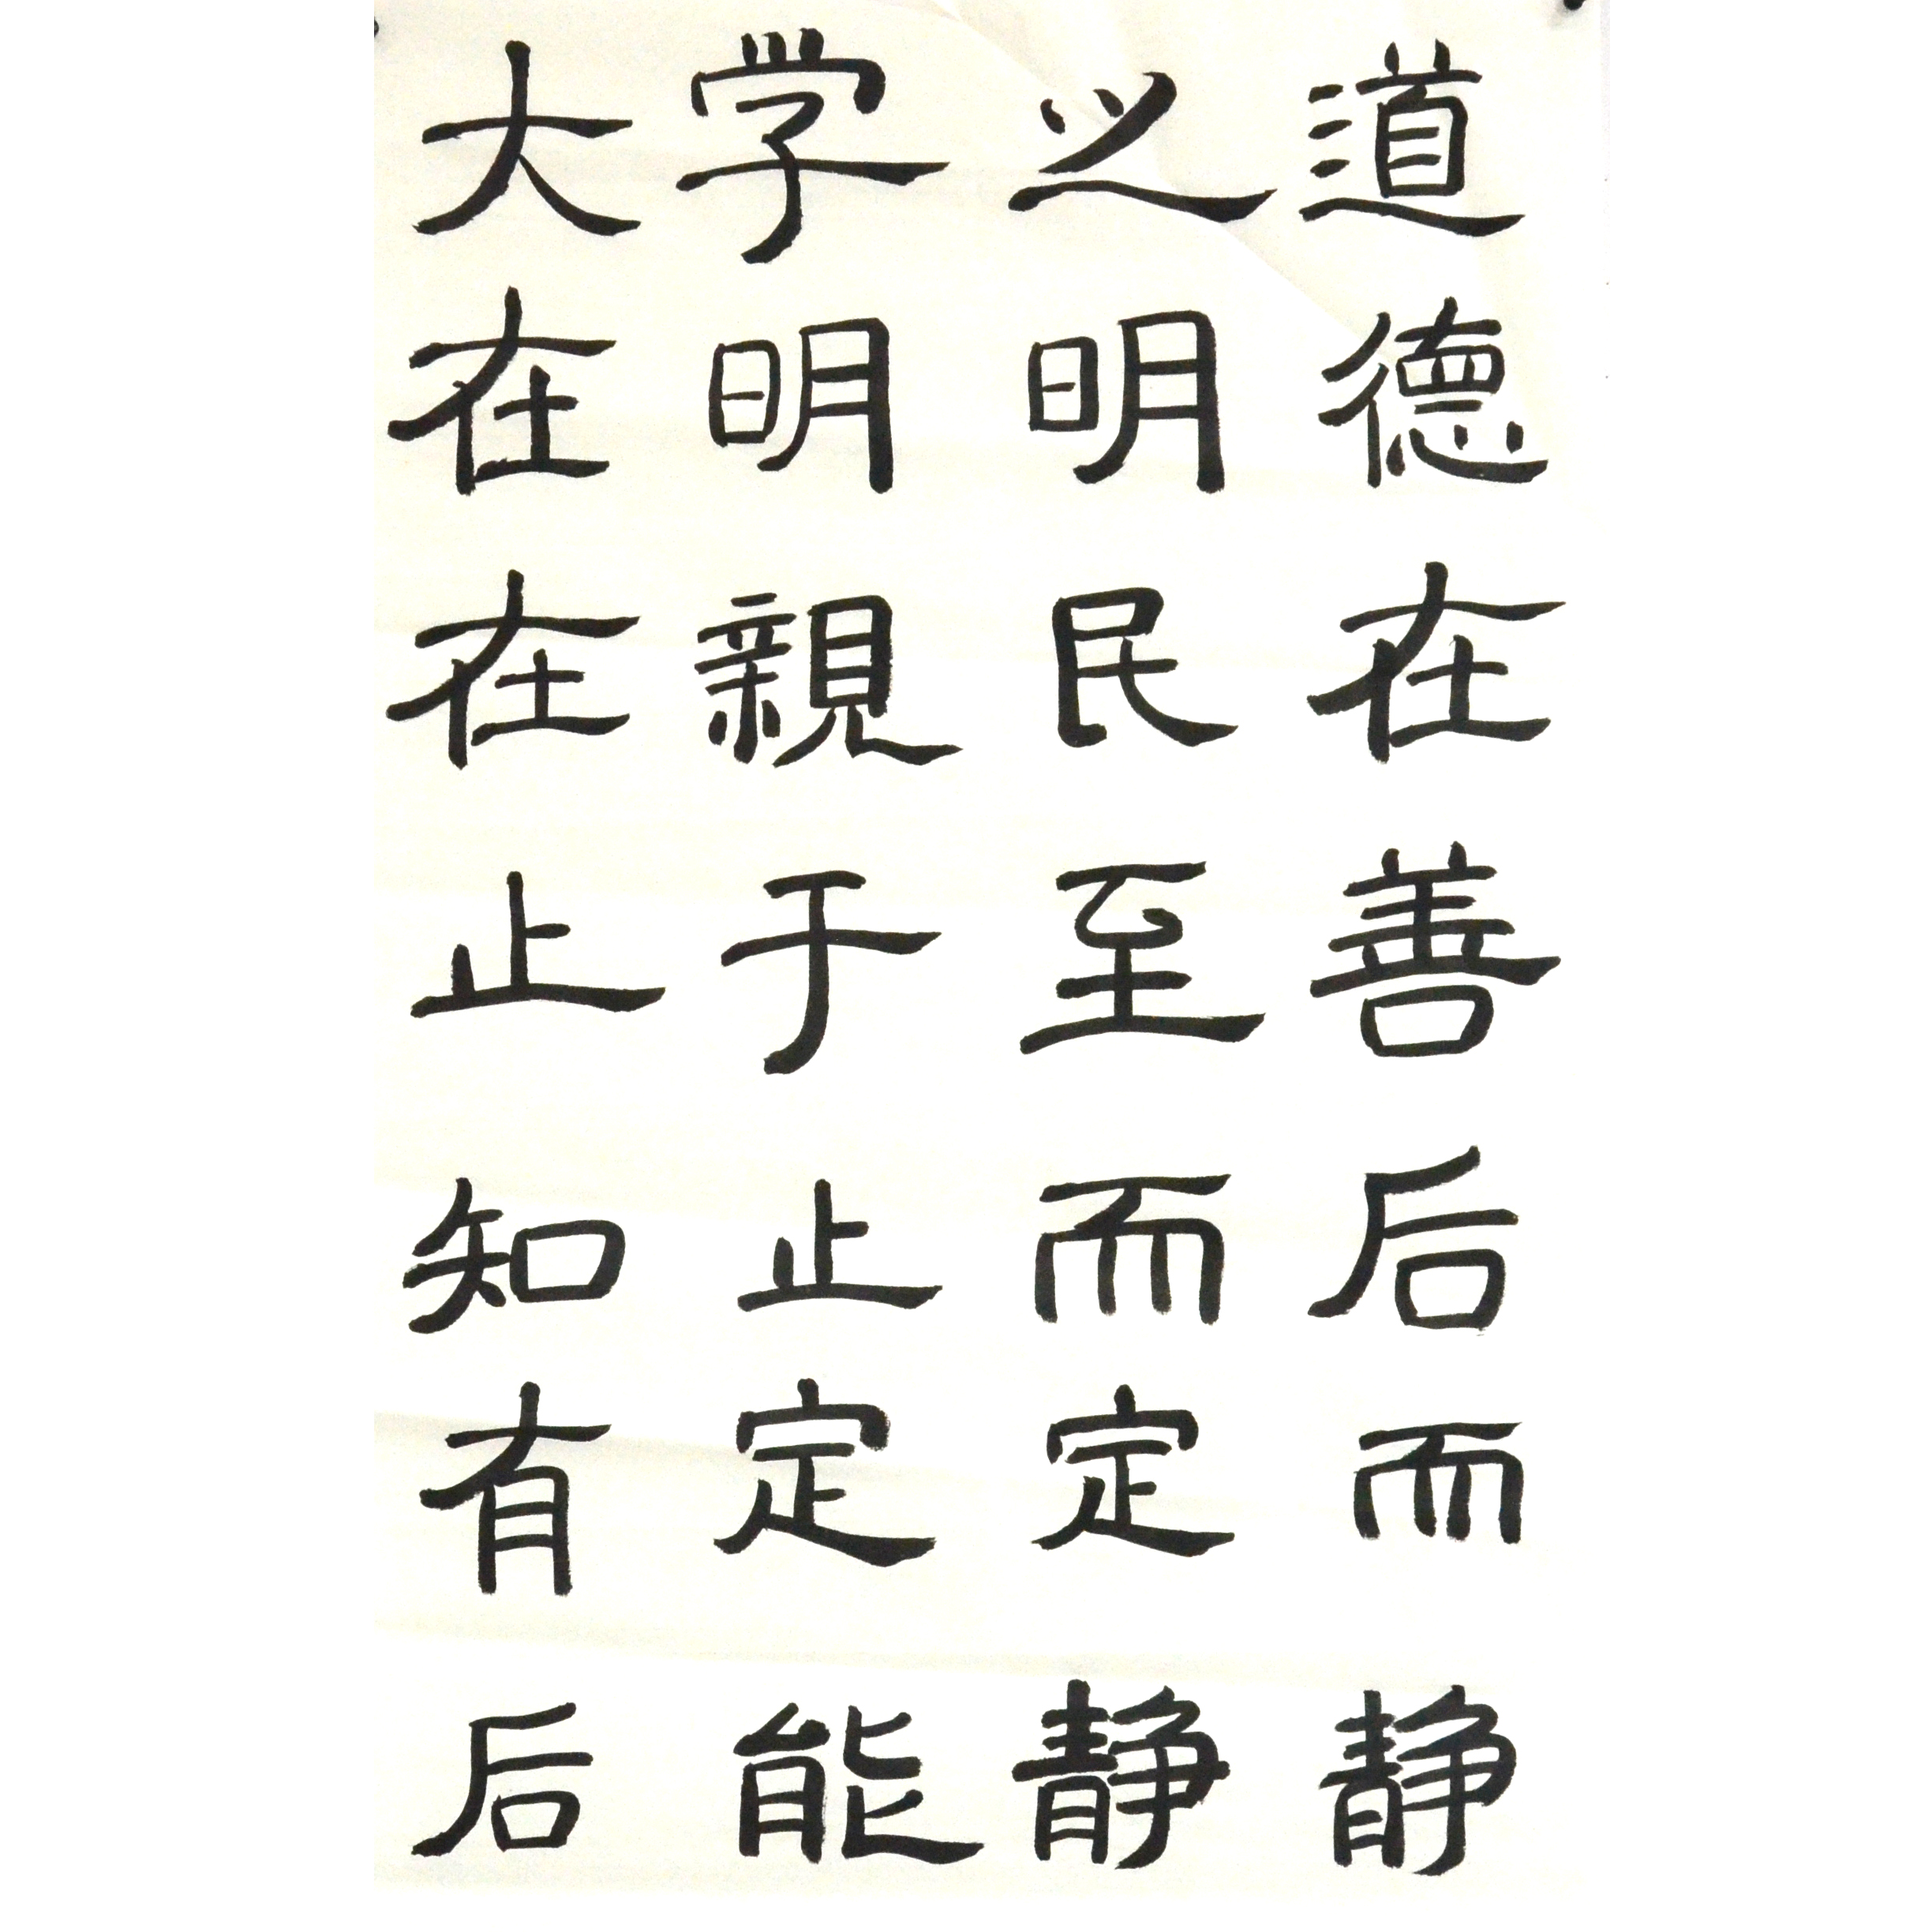 大学之道
在明明德
在親民在
止于至善
知止而后
有定定而
后能静静